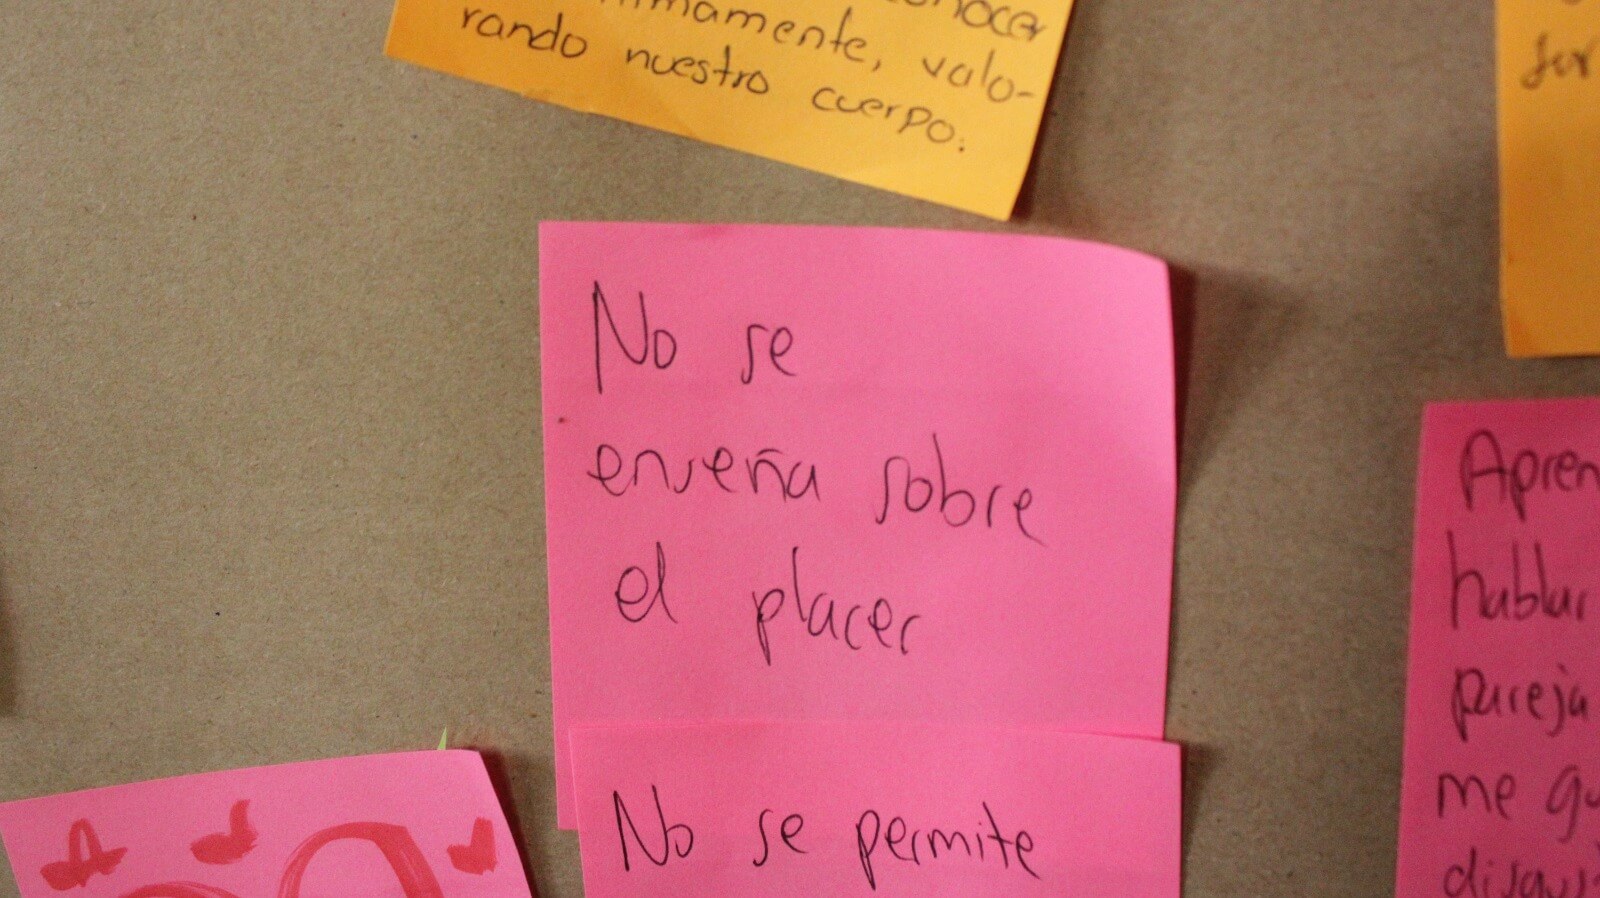 mamente, valo-
rando nuestro cuerpo.
No se
enseña sobre
el placer
No se permite
Apren
hablar
pareja
me gu
disgus